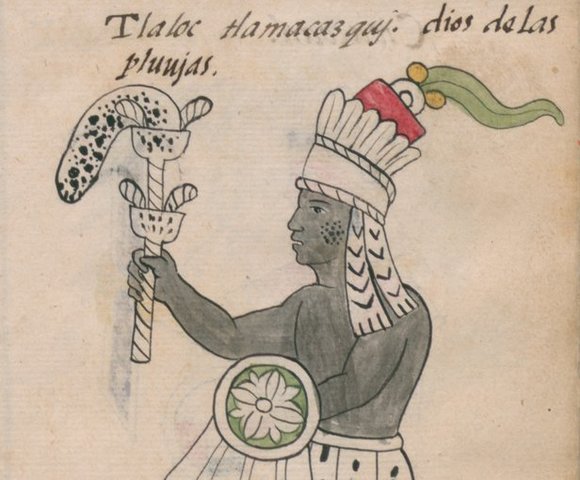 Tlaloc tlamacazquj. dios de las
pluujas.